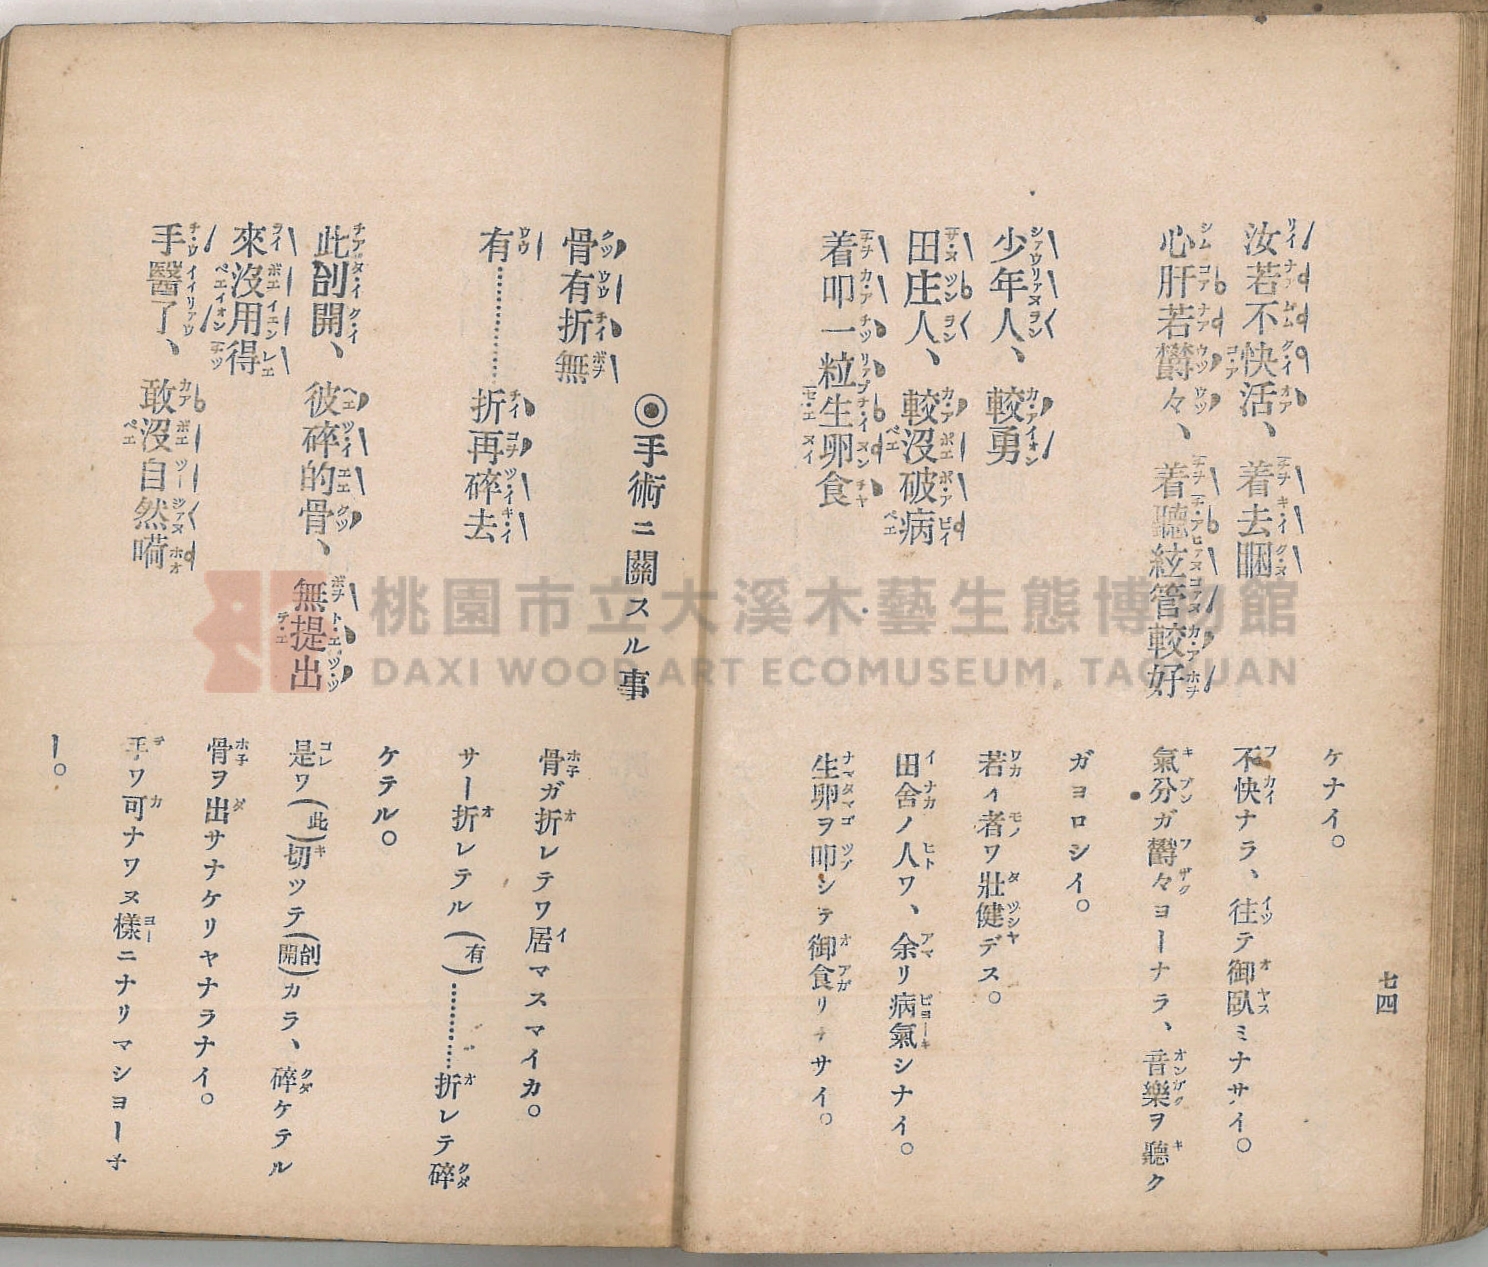 七四
汝若不快活、着去睏
心肝若欝々、着聽絃管較好
少年人、較勇
田庄人、較沒破病
着叩一粒生卵食
ケナイ。
不快ナラ、往テ御臥ミナサイ。
氣分ガ欝々ヨーナラ、音樂ヲ聽ク
ガヨロシイ。
若イ者ワ壯健デス。
田舍ノ人ワ、余リ病氣シナイ。
生卵ヲ叩シテ御食リナサイ。
◉手術ニ關スル事
骨有折無
有…………折再碎去
此刣開、彼碎的骨、無提出
來沒用得
手醫了、敢沒自然嗬
骨ガ折レテワ居マスマイカ。
サー折レテル(有)…………折レテ碎
ケテル。
是ワ(此)切ツテ(刣開)カラ、碎ケテル
骨ヲ出サナケリヤナラナイ。
手ワ可ナワヌ樣ニナリマシヨー子
ー。
桃園市立大溪木藝生態博物館
DAXI WOOD ART ECOMUSEUM, TAOYUAN